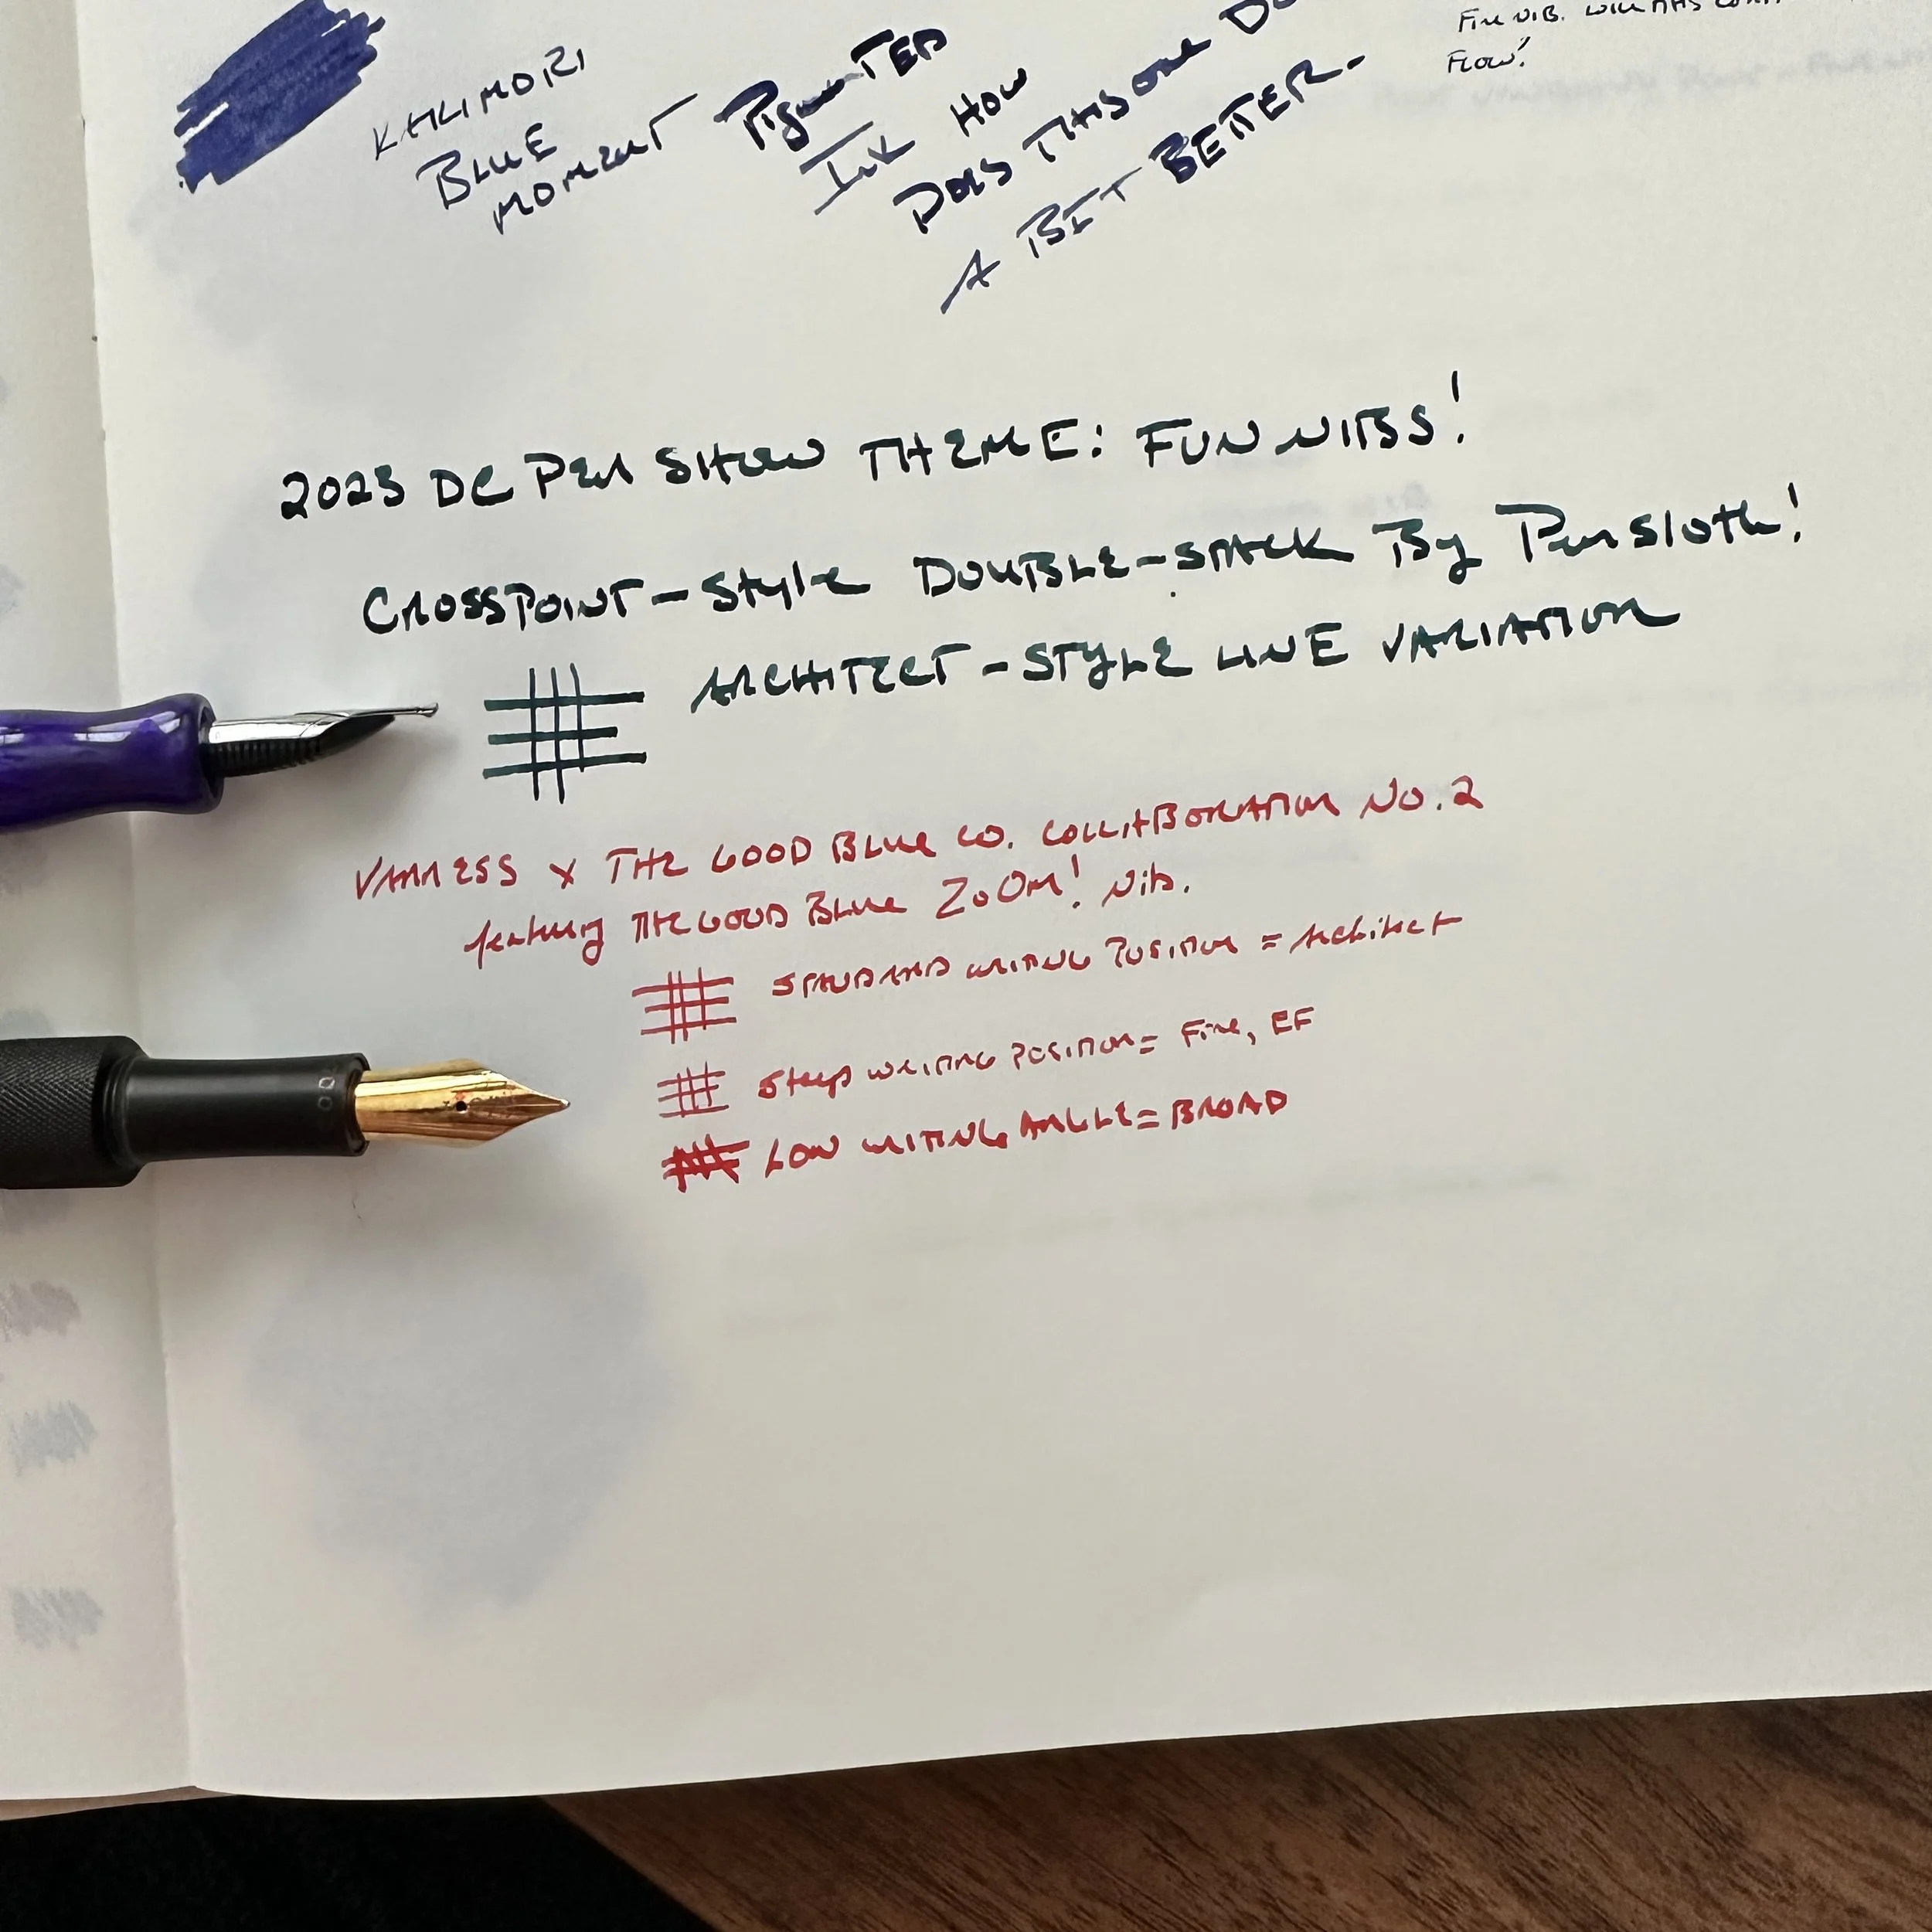 KAKIMORI
BLUE
MOMENT
PigmenTED
Ink How
Does THIS one Do
A BET BETTER.
Fine NIB.
Flow!
2023 DC Pen SHow THEME: FUN NIBS!
CROSSPOINT-Style DOUBLE-STACK By PenSloth!
ARCHITECT-STYLE LINE VARIATION
VANNESS x THE GOOD BLUE CO. COLLABORATION No. 2
featuring THE GOOD BLUE ZoOM! Nib.
STANDARD WRITING POSITION = Architect
Steep WRITING POSITION = Fine, EF
LOW WRITING ANGLE = BROAD